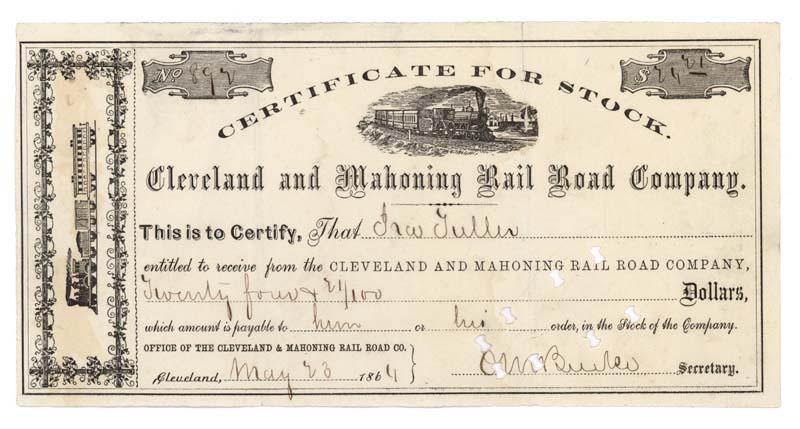 No 892
$24 21
CERTIFICATE FOR STOCK.
Cleveland and Mahoning Rail Road Company.
This is to Certify, That Ira Fuller
entitled to receive from the CLEVELAND AND MAHONING RAIL ROAD COMPANY,
Twenty four & 21/100 Dollars,
which amount is payable to him or his order, in the Stock of the Company.
OFFICE OF THE CLEVELAND & MAHONING RAIL ROAD CO.
Cleveland, May 23 1864
Secretary.